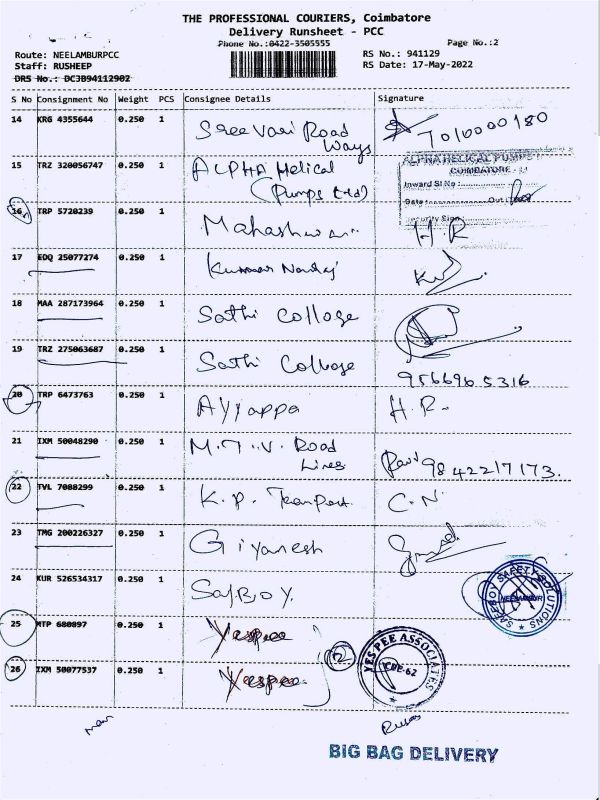 THE PROFESSIONAL COURIERS, Coimbatore
Delivery Runsheet - PCC
Phone No.:0422-3505555
Page No.:2
Route: NEELAMBURPCC
Staff: RUSHEEP
DRS No.: DC3B94112982
RS No.: 941129
RS Date: 17-May-2022
S No Consignment No Weight PCS Consignee Details Signature
14 KRG 4355644 0.250 1 Sree Vari Road Ways 7010000180
15 TRZ 320056747 0.250 1 ALPHA Helical (Pumps Ltd)
ALPHA HELICAL PUMPS
COIMBATORE
Inward Sl No :
Date : Out
Security Sign
16 TRP 5720239 0.250 1 H.R
17 EDQ 25077274 0.250 1 Kumar
18 MAA 287173964 0.250 1 Sathi College
19 TRZ 275063687 0.250 1 Sathi College 9566965316
20 TRP 6473763 0.250 1 Ayyappa H.R.
21 IXM 50048290 0.250 1 M.T.V. Road Lines Ravi 9842217173.
22 TVL 7088299 0.250 1 K.P. Transport C.N
23 TMG 200226327 0.250 1 Giyanesh
24 KUR 526534317 0.250 1 Safboy.
SAFEBOY SAFETY SOLUTIONS
NEELAMBUR
25 MTP 680897 0.250 1 Yespee
2
YES PEE ASSOCIATES
CBE-62
26 IXM 50077537 0.250 1 Yespee
BIG BAG DELIVERY